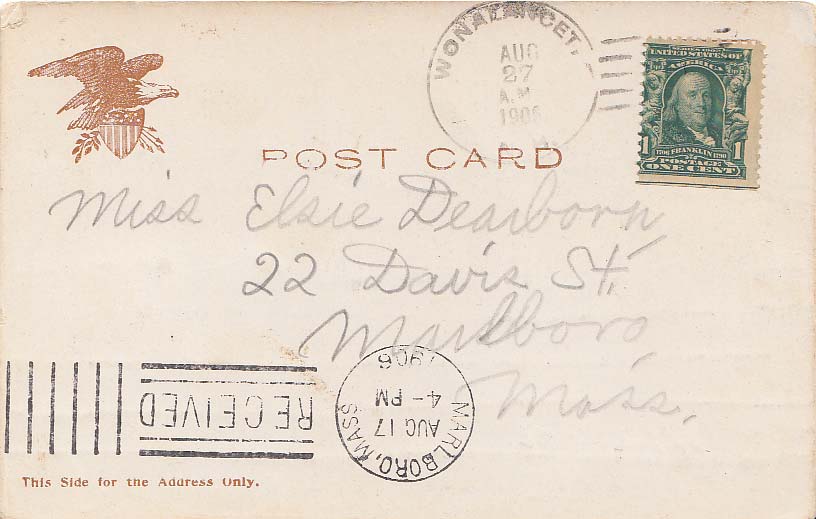 WONALANCET,
AUG
27
A.M.
1906
SERIES 1902
UNITED STATES OF
AMERICA
1 1
1706 FRANKLIN 1790
POSTAGE
ONE CENT
POST CARD
Miss Elsie Dearborn
22 Davis St.
Marlboro
Mass.
MARLBORO, MASS
AUG 17
4-PM
1906
RECEIVED
This Side for the Address Only.